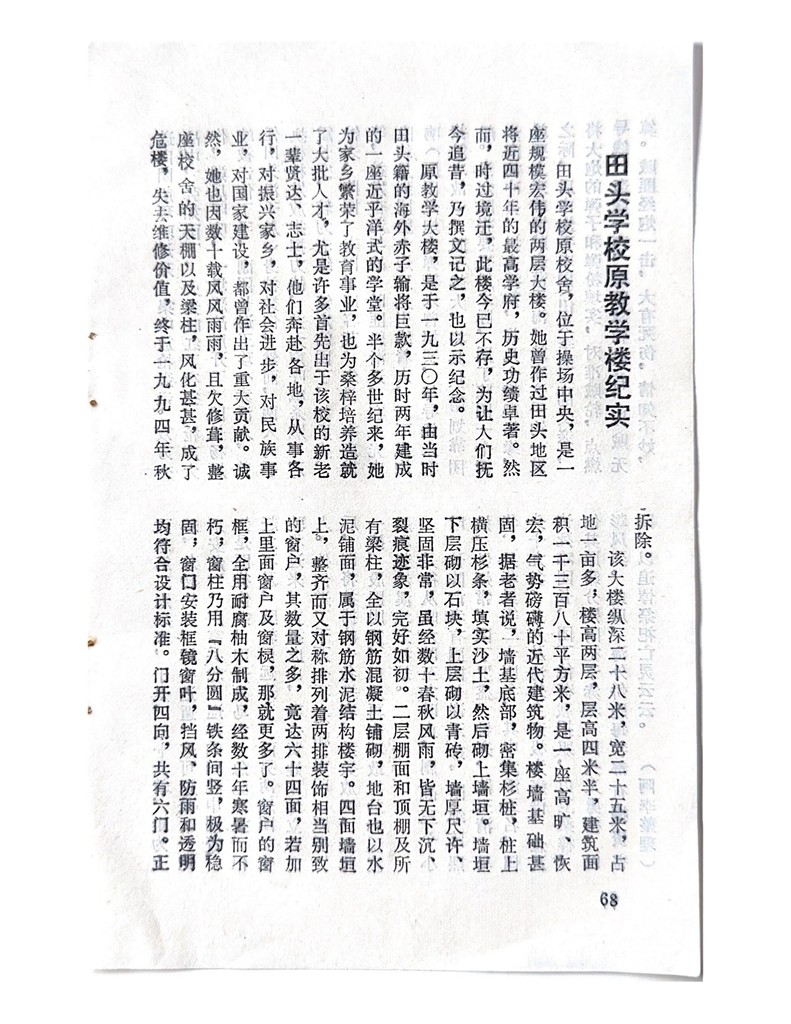 田头学校原教学楼纪实
田头学校原校舍，位于操场中央，是一
座规模宏伟的两层大楼。她曾作过田头地区
将近四十年的最高学府，历史功绩卓著。然
而，时过境迁，此楼今已不存，为让人们抚
今追昔，乃撰文记之，也以示纪念。
（原教学大楼，是于一九三〇年，由当时
田头籍的海外赤子输将巨款，历时两年建成
的一座近乎洋式的学堂。半个多世纪来，她
为家乡繁荣了教育事业，也为桑梓培养造就
了大批人才，尤是许多首先出于该校的新老
一辈贤达、志士，他们奔赴各地，从事各
行，对振兴家乡，对社会进步，对民族事
业，对国家建设，都曾作出了重大贡献。诚
然，她也因数十载风风雨雨，且欠修葺，整
座校舍的天棚以及梁柱，风化甚甚，成了
危楼，失去维修价值，终于一九九四年秋
拆除。
该大楼纵深二十八米，宽二十五米，占
地一亩多，楼高两层，层高四米半，建筑面
积一千三百八十平方米，是一座高旷、恢
宏，气势磅礴的近代建筑物。楼墙基础甚
固，据老者说，墙基底部，密集杉桩，桩上
横压杉条，填实沙土，然后砌上墙垣。墙垣
下层砌以石块，上层砌以青砖，墙厚尺许、
坚固非常，虽经数十春秋风雨，皆无下沉、
裂痕迹象，完好如初。二层棚面和顶棚及所
有梁柱，全以钢筋混凝土铺砌，地台也以水
泥铺面，属于钢筋水泥结构楼宇。四面墙垣
上，整齐而又对称排列着两排装饰相当别致
的窗户，其数量之多，竟达六十四面，若加
上里面窗户及窗棂，那就更多了。窗户的窗
框，全用耐腐柚木制成，经数十年寒暑而不
朽，窗柱乃用『八分圆』铁条间竖，极为稳
固，窗门安装框镜窗叶，挡风、防雨和透明
均符合设计标准。门开四向，共有六门。正
68